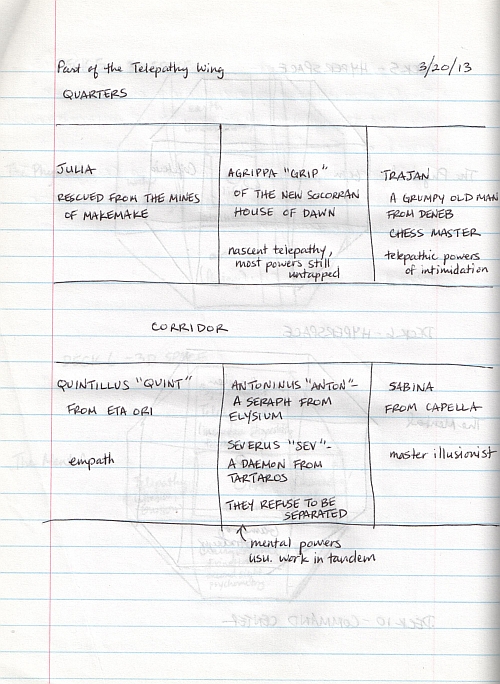 Part of the Telepathy Wing 3/20/13
QUARTERS
JULIA
RESCUED FROM THE MINES
OF MAKEMAKE
AGRIPPA "GRIP"
OF THE NEW SOCORRAN
HOUSE OF DAWN
nascent telepathy,
most powers still
untapped
TRAJAN
A GRUMPY OLD MAN
FROM DENEB
CHESS MASTER
telepathic powers
of intimidation
CORRIDOR
QUINTILLUS "QUINT"
FROM ETA ORI
empath
ANTONINUS "ANTON"-
A SERAPH FROM
ELYSIUM
SEVERUS "SEV"-
A DAEMON FROM
TARTAROS
THEY REFUSE TO BE
SEPARATED
mental powers
usu. work in tandem
SABINA
FROM CAPELLA
master illusionist
DECK 6 - HYPERSPACE
DECK 10 - COMMAND CENTER